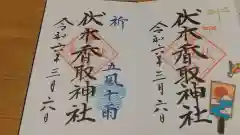 伏木香取神社
令和六年三月六日
祈
五風十雨
伏木香取神社
令和六年三月六日